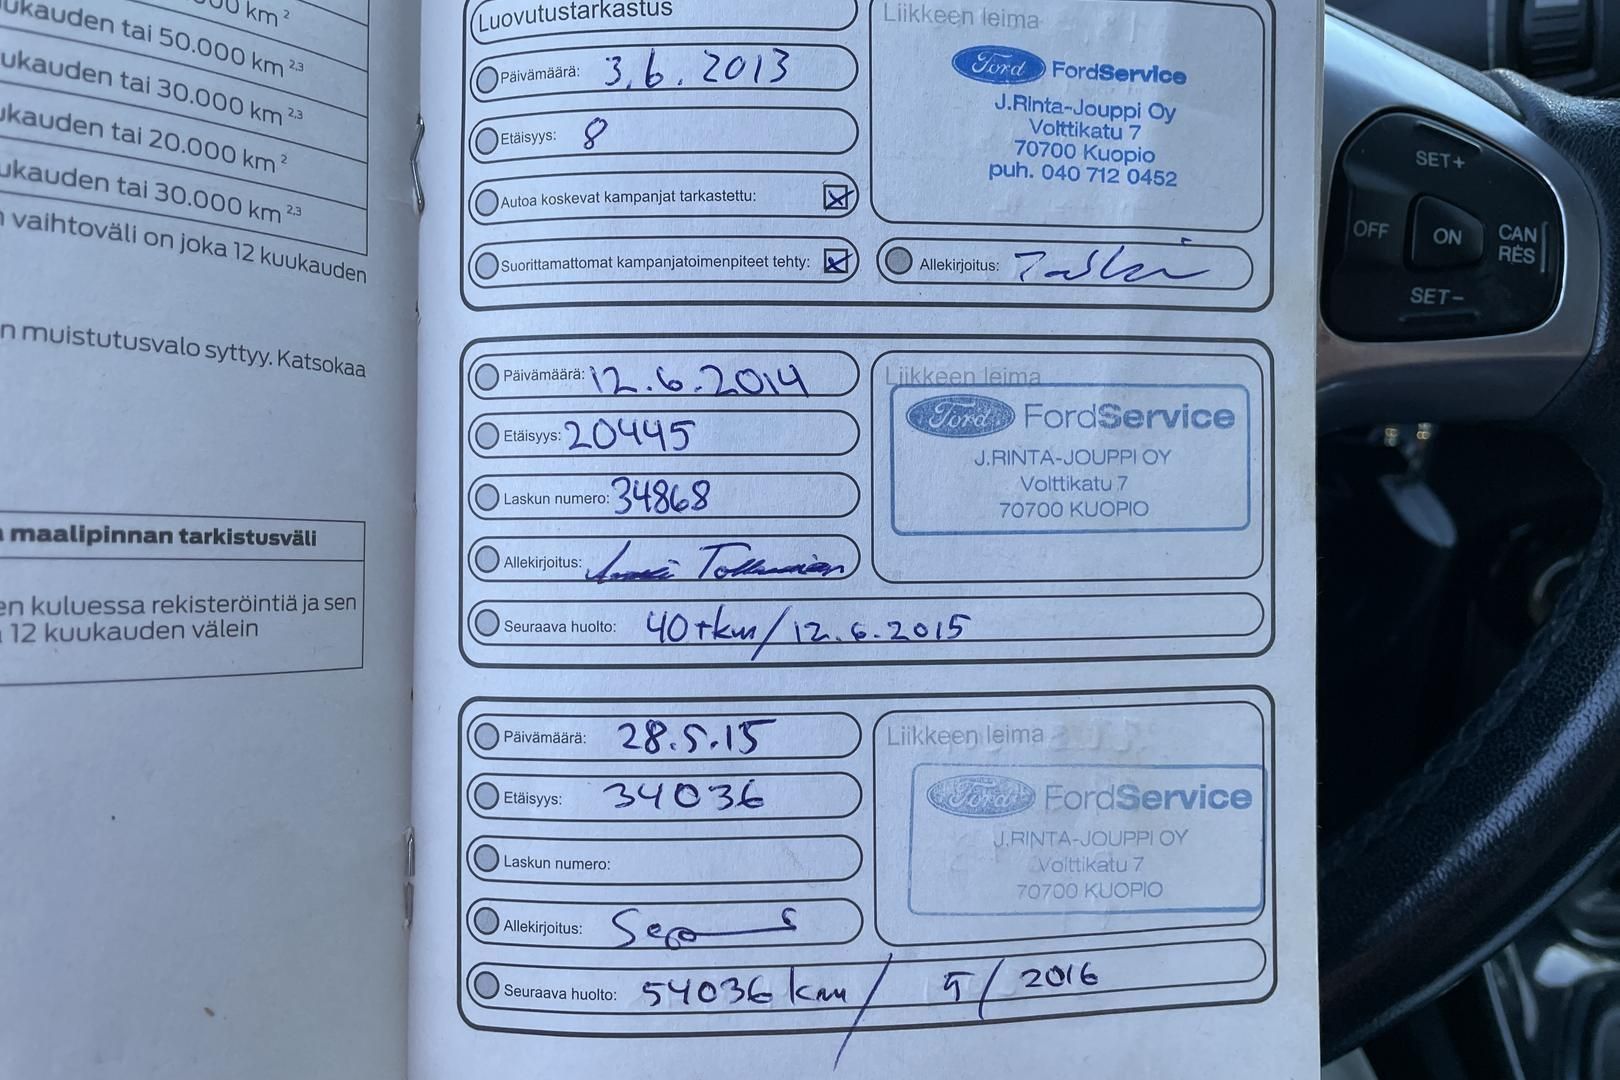 000 km 2
ukauden tai 50.000 km 2,3
ukauden tai 30.000 km 2,3
ukauden tai 20.000 km 2
ukauden tai 30.000 km 2,3
vaihtoväli on joka 12 kuukauden
n muistutusvalo syttyy. Katsokaa
maalipinnan tarkistusväli
en kuluessa rekisteröintiä ja sen
12 kuukauden välein
Luovutustarkastus
Päivämäärä: 3.6.2013
Etäisyys: 8
Autoa koskevat kampanjat tarkastettu:
Suorittamattomat kampanjatoimenpiteet tehty:
Liikkeen leima
Ford FordService
J.Rinta-Jouppi Oy
Volttikatu 7
70700 Kuopio
puh. 040 712 0452
Allekirjoitus:
Päivämäärä: 12.6.2014
Etäisyys: 20445
Laskun numero: 34868
Allekirjoitus:
Seuraava huolto: 40tkm/12.6.2015
Liikkeen leima
Ford FordService
J.RINTA-JOUPPI OY
Volttikatu 7
70700 KUOPIO
Päivämäärä: 28.5.15
Etäisyys: 34036
Laskun numero:
Allekirjoitus:
Seuraava huolto: 54036 km / 5/2016
Liikkeen leima
Ford FordService
J.RINTA-JOUPPI OY
Volttikatu 7
70700 KUOPIO
SET+
OFF
ON
CAN
RES
SET-